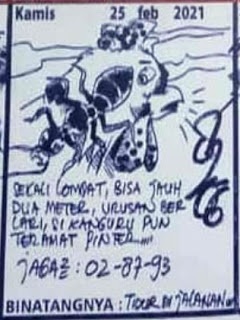 Kamis 25 feb 2021
SEKALI LOMPAT, BISA JAUH
DUA METER, URUSAN BER
LARI, SI KANGURU PUN
TERAMAT PINTER....
JAGA2 : 02-87-93
BINATANGNYA : TIDUR DI JALANAN